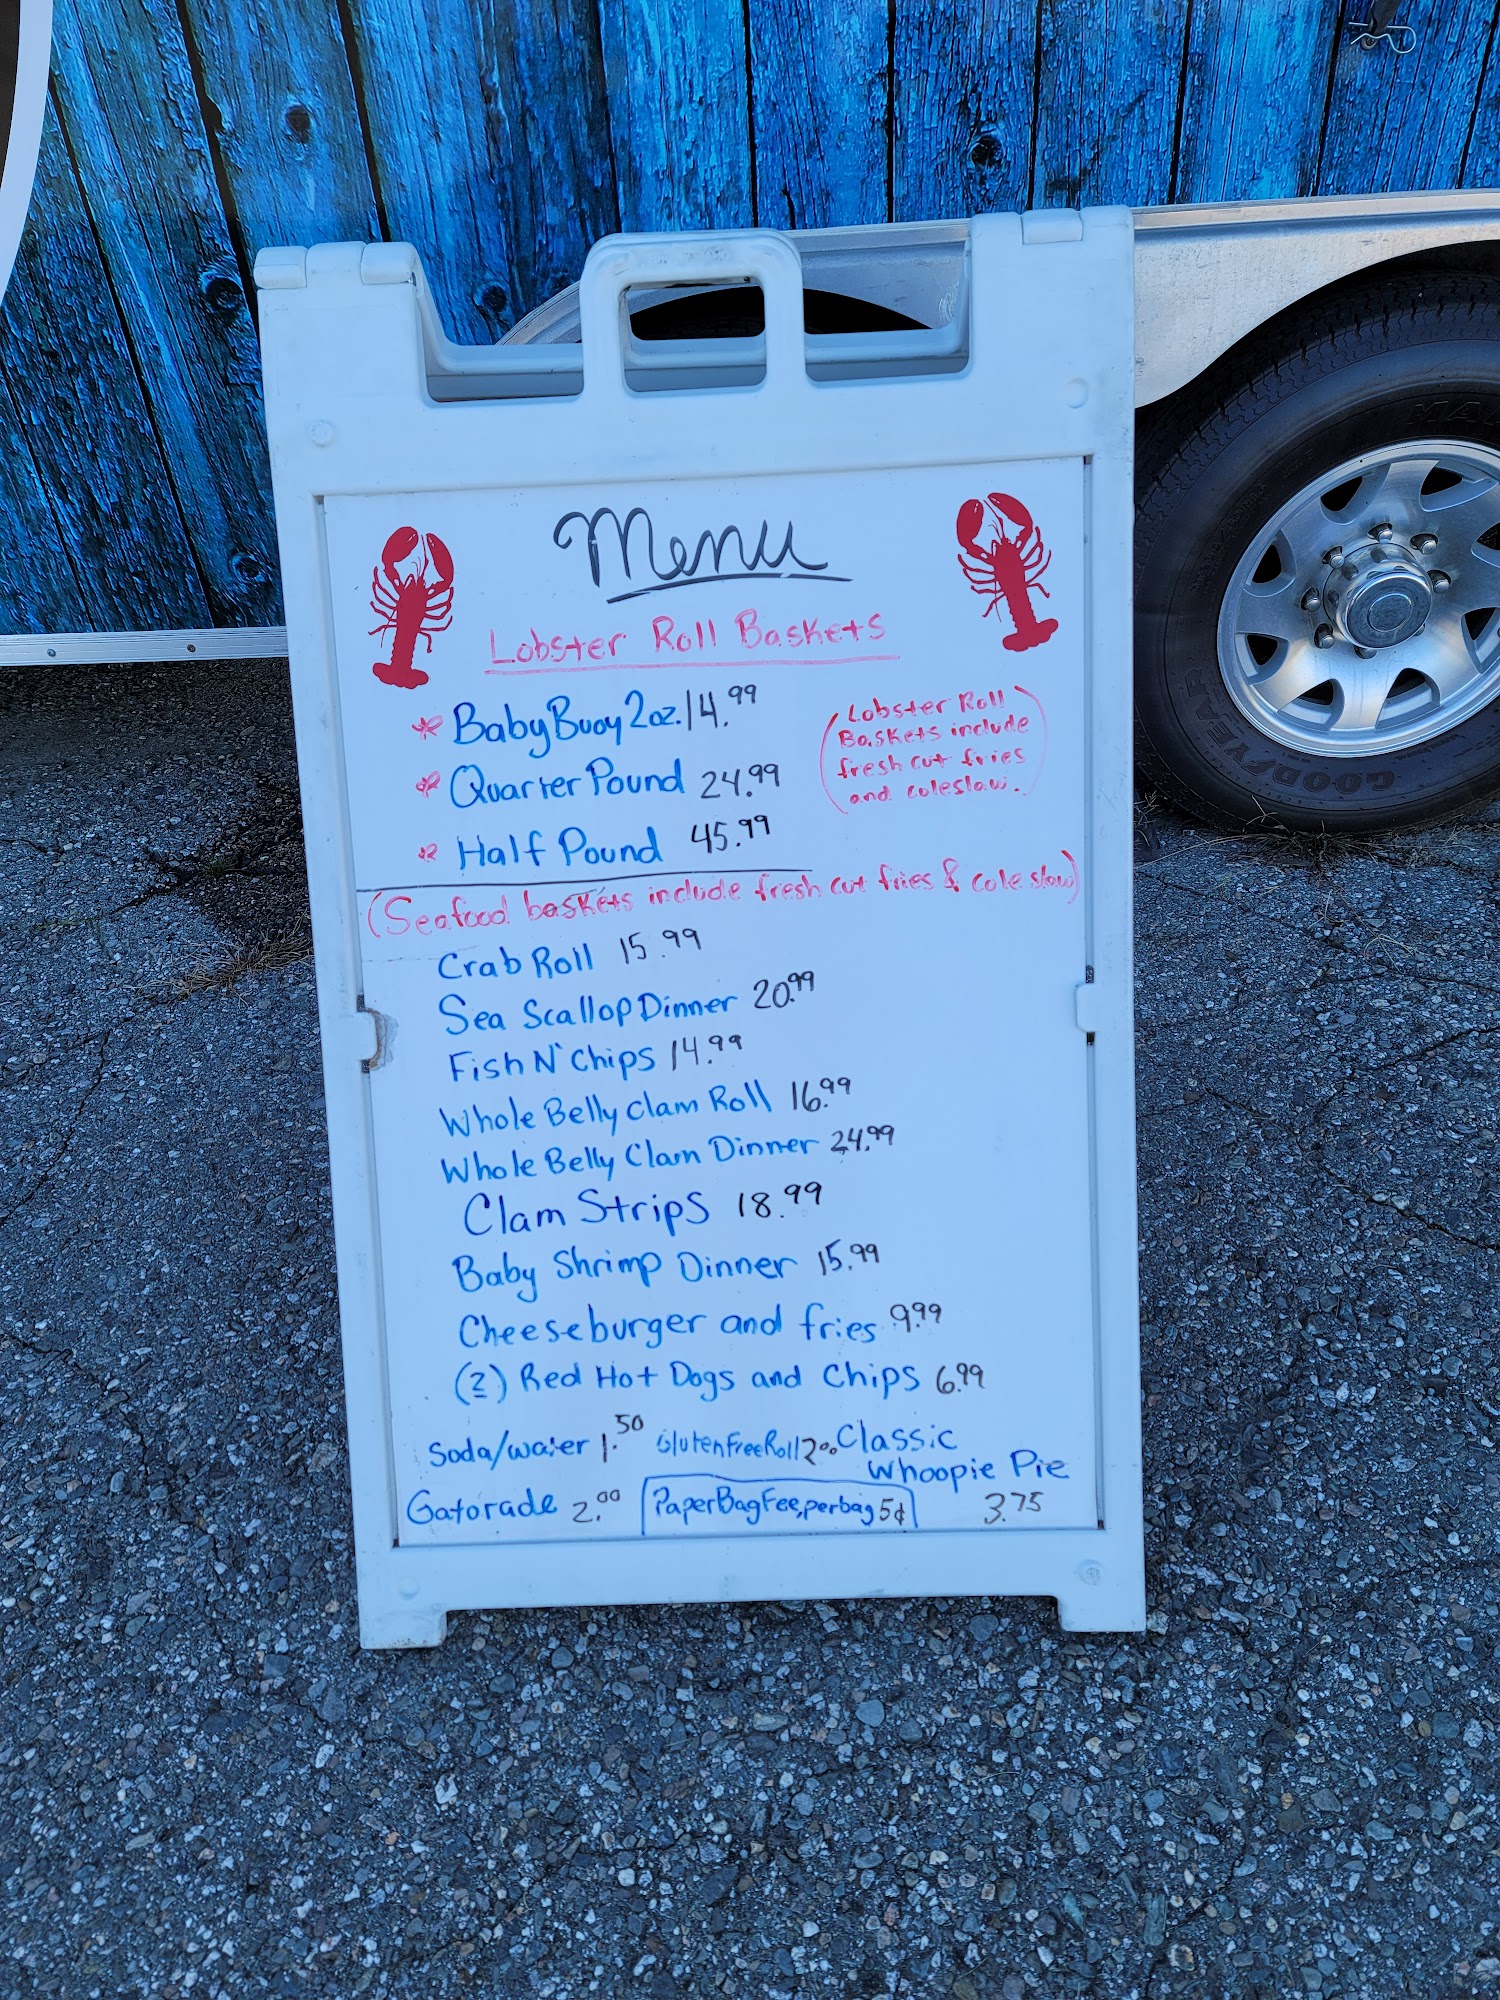 Menu
Lobster Roll Baskets
Baby Buoy 2oz. 14.99
Quarter Pound 24.99
Half Pound 45.99
(Lobster Roll
Baskets include
fresh cut fries
and coleslaw.)
(Seafood baskets include fresh cut fries & cole slaw)
Crab Roll 15.99
Sea Scallop Dinner 20.99
Fish N' Chips 14.99
Whole Belly Clam Roll 16.99
Whole Belly Clam Dinner 24.99
Clam Strips 18.99
Baby Shrimp Dinner 15.99
Cheeseburger and fries 9.99
(2) Red Hot Dogs and Chips 6.99
Soda/water 1.50
Gluten Free Roll 2.00
Classic
Whoopie Pie
3.75
Gatorade 2.00
Paper Bag Fee, per bag 5¢
GOODYEAR